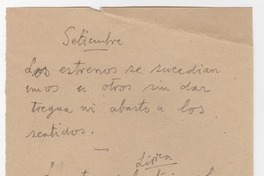 Setiembre
Los estrenos se sucedian
unos a otros sin dar
tregua ni abasto a los
sentidos.
Lírica